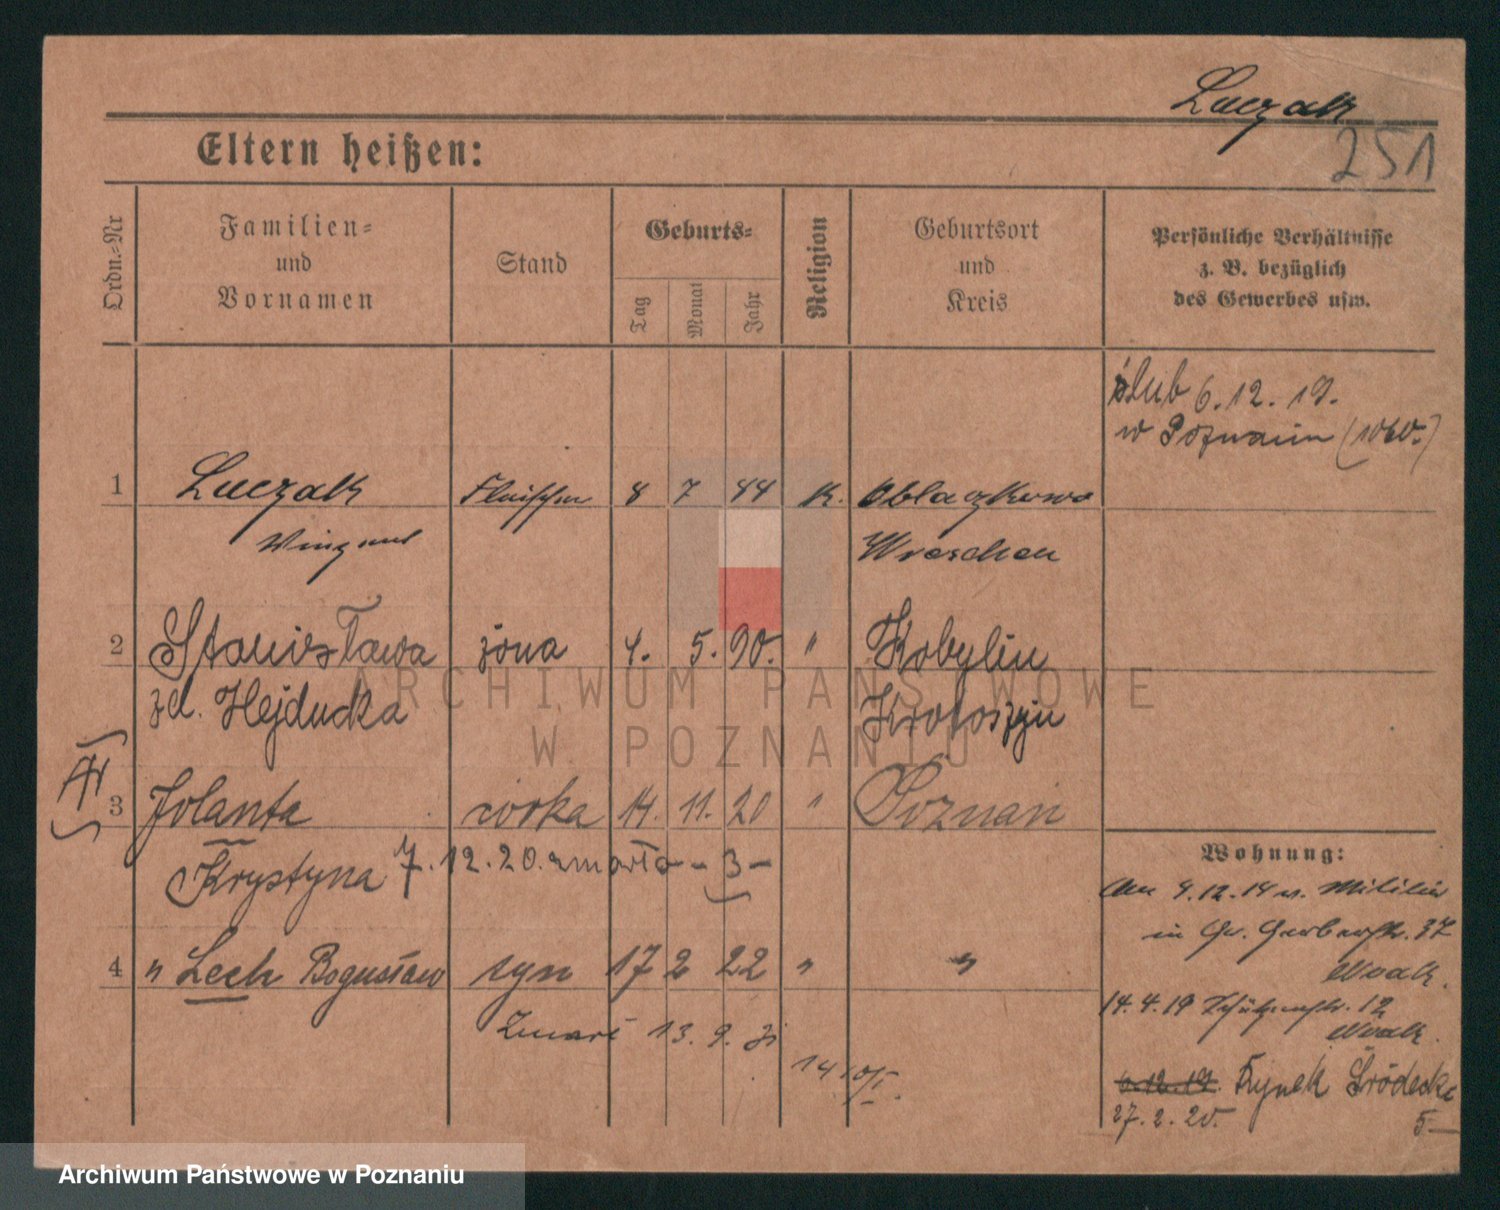 Luczak
251
Eltern heißen:
Ordn.-Nr
Familien- und Vornamen
Stand
Geburts-
Tag
Monat
Jahr
Religion
Geburtsort und Kreis
Persönliche Verhältnisse z. B. bezüglich des Gewerbes usw.
ślub 6.12.19.
w Poznaniu
1 Luczak Fleischer 8 7 44 K.
Winzent Wreschen
2 Stanisława żona 4. 5. 90. " Kobylin
zd. Hejducka Krotoszyn
3 Jolanta córka 14. 11. 20 " Poznań
Krystyna 7.12.20. zmarła - 3 -
4 " Lech Bogusław syn 17 2 22 " "
Zmarł 13. 9.
Wohnung:
in Gr. Gerberstr. 37
14.4.19 Schützenstr. 12
6.12.19. Rynek Śródecki
27.2.20. 5-
ARCHIWUM PAŃSTWOWE
W POZNANIU
Archiwum Państwowe w Poznaniu